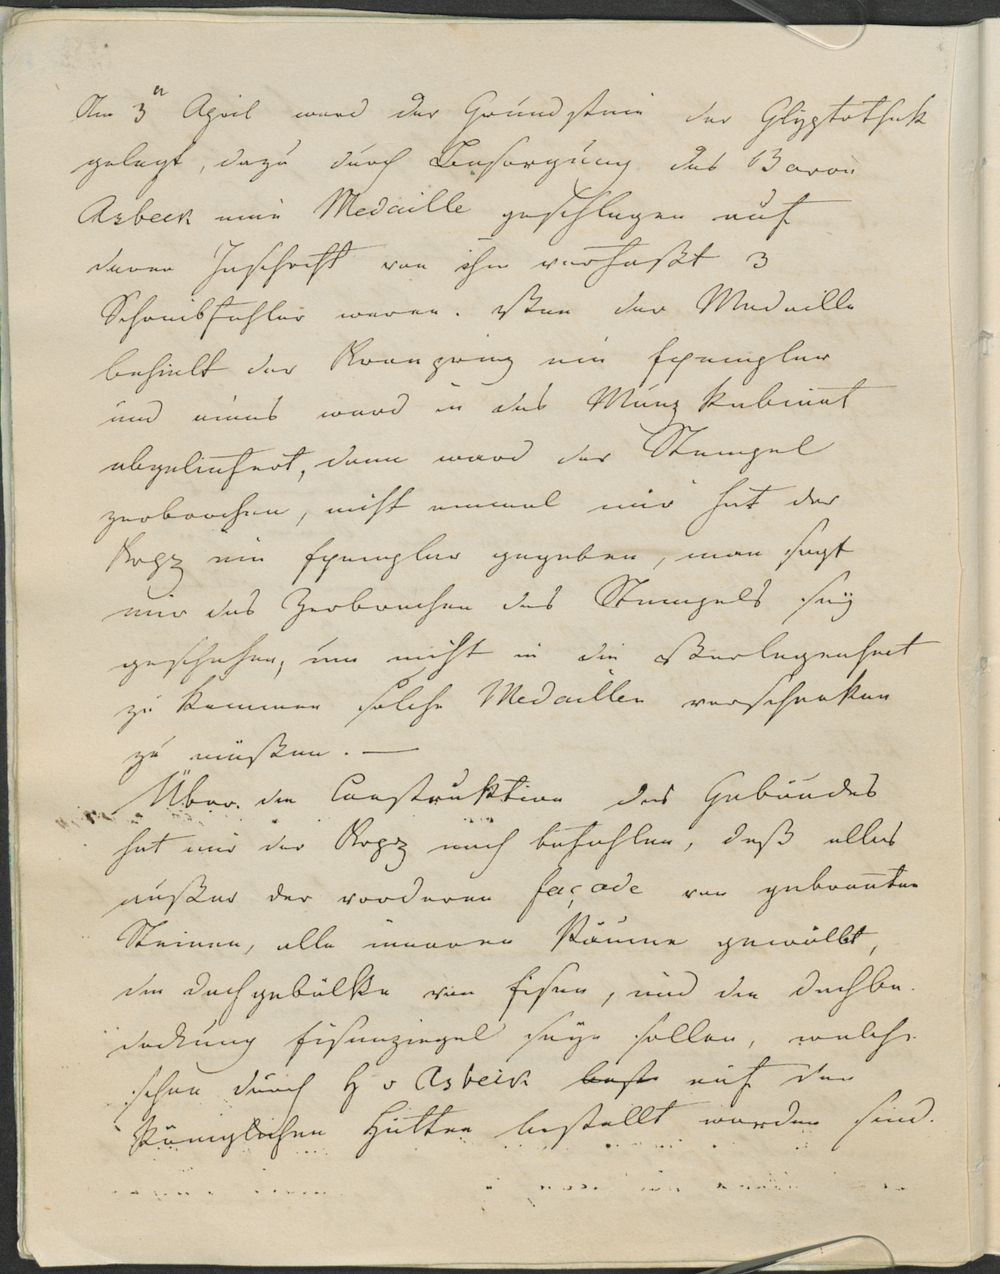 Am 3n April ward der Grundstein der Glyptothek
gelegt, dazu durch Besorgung des Baron
Asbeck eine Medaille geschlagen auf
deren Inschrift von ihm verfaßt 3
Schreibfehler waren. Von der Medaille
behielt der Kronprinz ein Exemplar
und eines ward in das Münz Kabinet
abgeliefert, dann ward der Stempel
zerbrochen, nicht einmal mir hat der
Krpz ein Exemplar gegeben, man sagt
mir das Zerbrechen des Stempels sey
geschehen, um nicht in die Verlegenheit
zu kommen solche Medaillen verschenken
zu müßen. —
Über die Construktion des Gebäudes
hat mir der Krpz noch befohlen, daß alles
außer der vorderen façade von gebrannten
Steinen, alle inneren Räume gewölbt,
die Dachgebälke von Eisen, und die Dachbe-
deckung Eisenziegel seyn sollen, welche
schon durch H v Asbeck auf den
Königlichen Hütten bestellt worden sind.